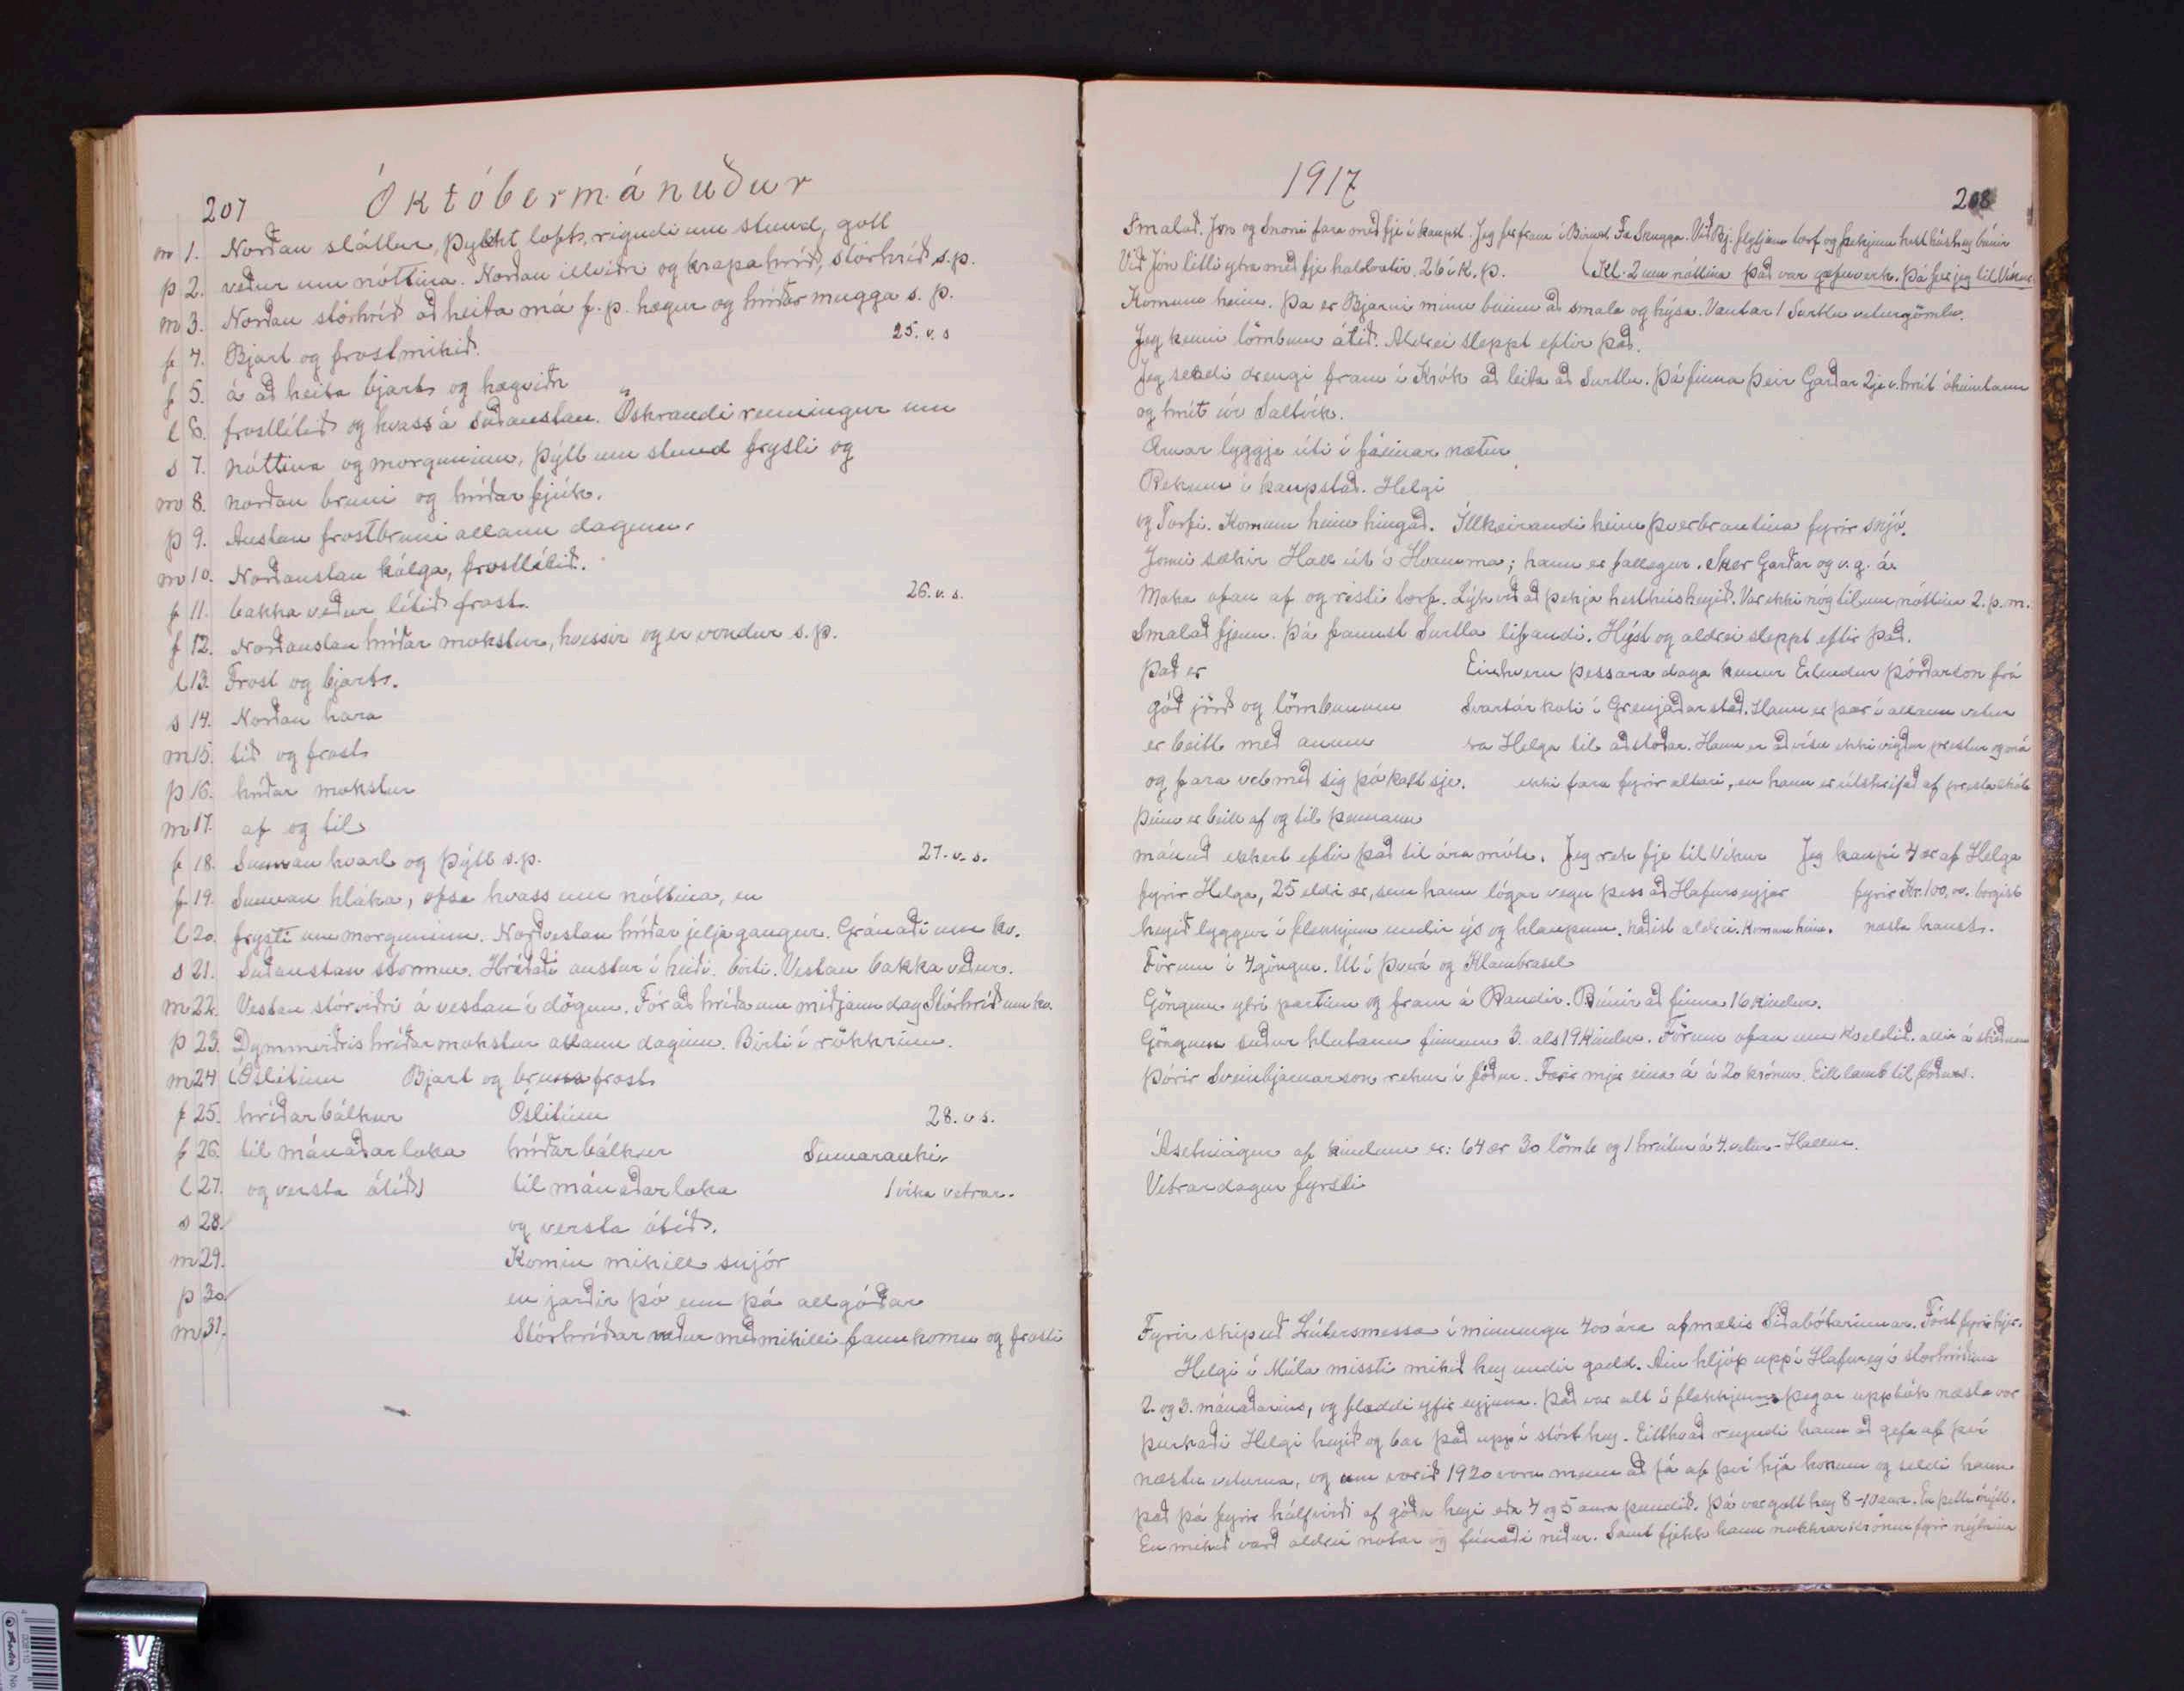 207 Októbermánuður
m 1. Norðan sláttur, þykkt loft, rigndi um stund, gott
þ 2. veður um nóttina. Norðan illviðri og krapahríð, stórhríð s.p.
m 3. Norðan stórhríð að heita má f.p. hægur og hríðarmugga s.p.
f 4. Bjart og frostmikið. 25. v. s
f 5. á að heita bjart og hægviðri
l 6. frostlítið og hvass á suðaustan. Öskrandi renningur um
s 7. nóttina og morguninn, þýtt um stund frysti og
m 8. norðan bruni og hríðar fjúk.
þ 9. Austan frostbruni allann daginn.
m 10. Norðaustan kólga, frostlítið.
f 11. bakka veður lítið frost. 26. v. s.
f 12. Norðaustan hríðar mokstur, hvessir og er vondur s.p.
l 13. Frost og bjart.
s 14. Norðan hara
m 15. tíð og frost
þ 16. hríðar mokstur
m 17. af og til
f 18. Sunnan hvart og þýtt s.p. 27. v. s.
f 19. Sunnan hláka, ofsa hvass um nóttina, en
l 20. frysti um morguninn. Norðvestan hríðar jeljagangur. Gránaði um kv.
s 21. Suðaustan stormur. Hríðaði austur í heiði. birti. Vestan bakka veður.
m 22. Vestan stórviðri á vestan í dögun. Fór að hríða um miðjann dag Stórhríð um kv.
þ 23. Dymmviðris hríðarmokstur allann daginn. Birti í rökkrinu.
m 24 (Óslitinn Bjart og bruna frost
f 25. hríðarbálkur Óslitinn 28. v s.
f 26. til mánaðarloka hríðarbálkur Sumarauki.
l 27. og versta ótíð) til mánaðarloka 1 vika vetrar.
s 28. og versta ótíð.
m 29. Komin mikill snjór
þ 30 en jarðir þó enn þá allgóðar
m 31. Stórhríðar veður með mikilli fannkomu og frosti
1917 208
Smalað. Jón og Snorri fara með fje í kaupst. Jeg fer fram í Fæ Skugga. Við Bj. flytjum torf og þekjum hesthúshey búnir
Við Jón litli ytra með fje haldvatir. 26 í K. p. (Kl. 2 um nóttina það var gæfuverk. Þá fer jeg til Víkur.
Komum heim. Þá er Bjarni minn búinn að smala og hýsa. Vantar 1 Surtlu veturgömlu.
Jeg kenni lömbum átið. Aldrei sleppt eftir það.
Jeg sendi drengi fram í Krók að leita að Surtlu. Þá finna þeir Garðar 2ja v. hrút óheimtann
og hrút úr Saltvík.
Ærnar lyggja úti í fáeinar nætur
Rekum í kaupstað. Helgi
og Torfi. Komum heim hingað. Illkeirandi heim þverbrautina fyrir snjó.
Jónni sækir Hall út í Hvamma; hann er fallegur. Sker Garðar og v. g. á.
Moka ofan af og risti torf. Lýk við að þekja hesthúsheyið. Var ekki nóg til um nóttina 2. p. m.
Smalað fjenu. Þá fannst Surtla lifandi. Hýst og aldrei sleppt eftir það.
Það er Einhvern þessara daga kemur Erlendur Þórðarson frá
góð jörð og lömbunum Svartárkoti í Grenjaðarstað. Hann er þar í allann vetur
er beitt með ánum Helga til aðstoðar. Hann er að vísu ekki vígður prestur og má
og fara vel með sig þó kalt sje. ekki fara fyrir altari, en hann er útskrifað af prestaskóla
þeim er beitt af og til þennann
mánuð ekkert eftir það til áramóta. Jeg rek fje til Víkur Jeg kaupi 4 ær af Helga
fyrir Helga, 25 eldi ær, sem hann lógar vegn þess að Hafurseyjar fyrir Kr. 100,oo. borgist
heyið lyggur í flekkjum undir ýs og hlaupum. Náðist aldrei. Komum heim. næsta haust.
Förum í 4 göngur. Út í Þverá og Klambrasel
Göngum ytri partinn og fram á Randir. Búnir að finna 16 kindur.
Göngum suður hlutann finnum 3. als 19 kindur. Förum ofan um kveldið. allir á skíðum
Þórir Sveinbjarnarson rekur í fóður. Færir mjer eina á á 20 krónur. Eitt lamb til fóðurs.
Ásetningur af kindum er: 64 ær 30 lömb og 1 hrútur á 4. vetur - Hallur.
Vetrardagur fyrsti
Fyrir skipuð Lútersmessa í minningu 400 ára afmælis Siðabótarinnar. Fórst fyrir hjer.
Helgi í Múla missti mikið hey undir gadd. Áin hljóp upp í Hafurey í stórhríðina
2. og 3. mánaðarins, og flæddi yfir eyjuna. Það var alt í flekkjum þegar upptók næsta vor
þurkaði Helgi heyið og bar það upp í stórt hey. Eitthvað reyndi hann að gefa af því
næstu veturna, og um vorið 1920 voru menn að fá af því hjá honum og seldi hann
það þá fyrir hálfvirði af góðu heyi eða 4 og 5 aura pundið. Þá var gott hey 8-10 aura. En þetta
En mikið varð aldrei notað og fúnaði niður. Samt fjekk hann nokkrar krónur fyrir